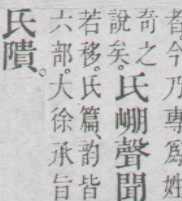 者今乃專爲姓
奇之
說矣。氏崩聲聞
若移。氏篇、韵皆
六部。大徐承旨
氏隤。